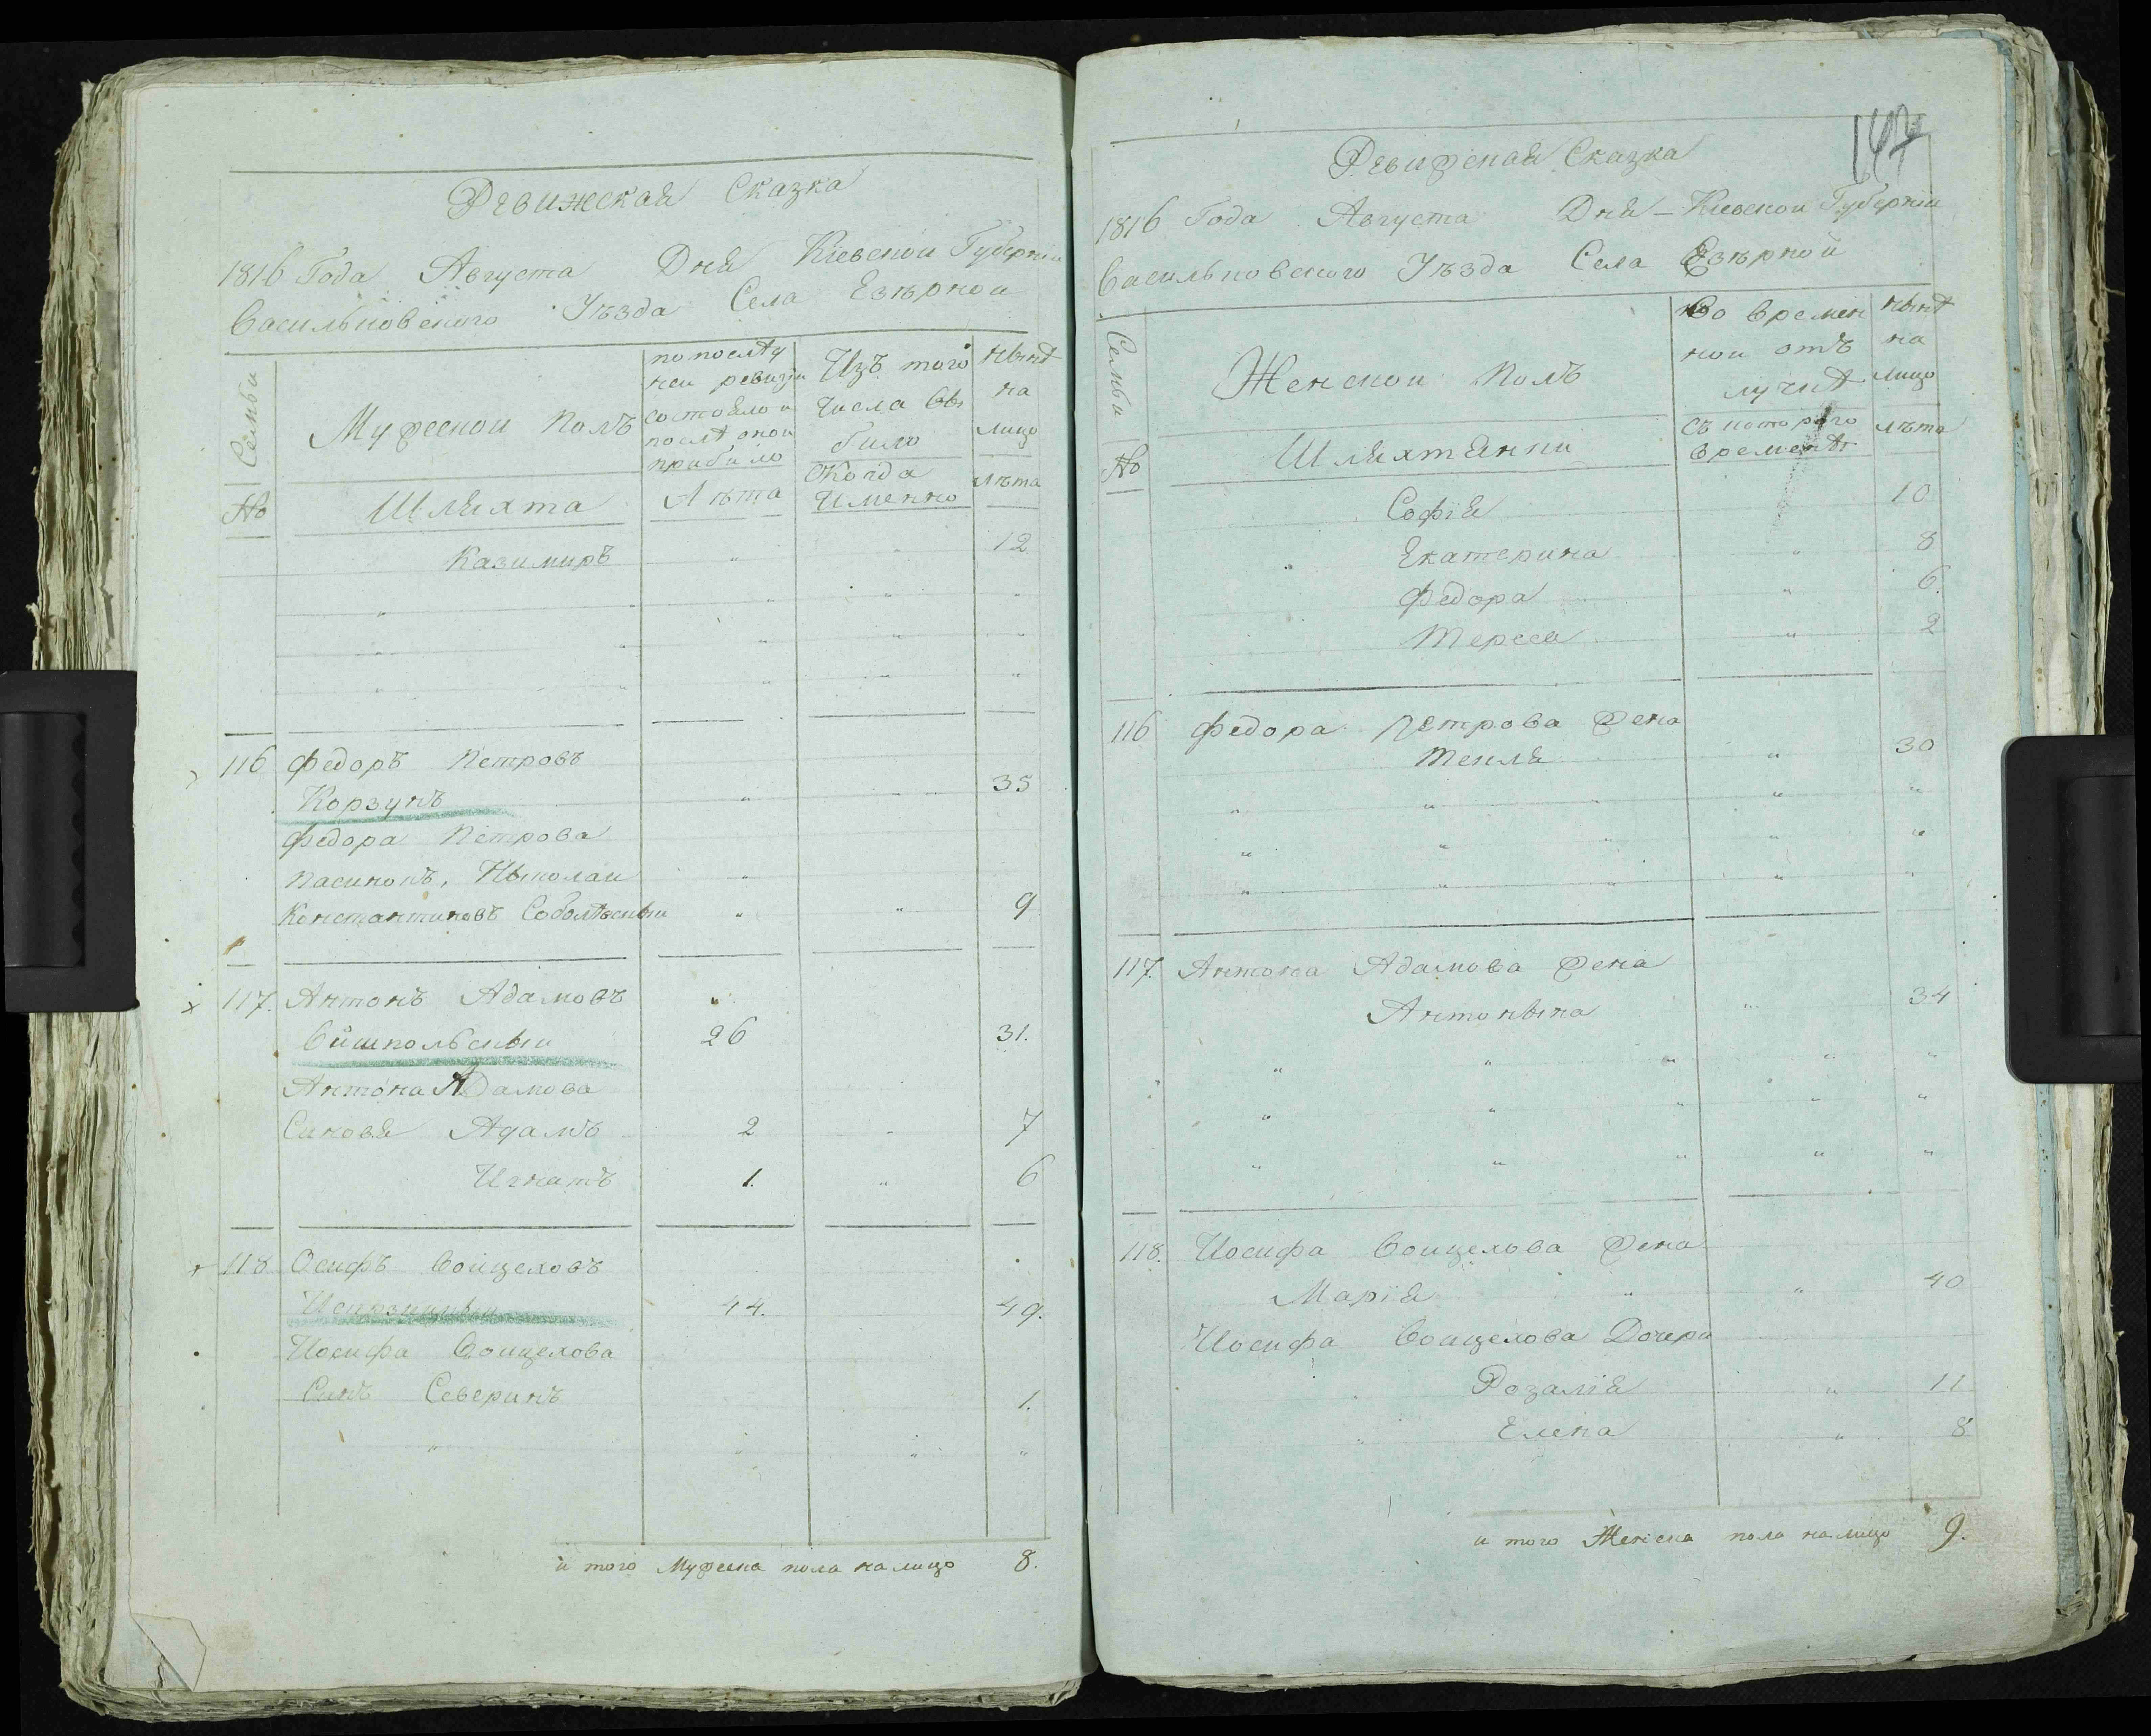 Ревижская Сказка
1816 Года Августа Дня Кіевской Губерніи
Васильковского Уѣзда Села Езѣрной
№ Семьи
Мужеской Полъ
по послѣд
ней ревизіи
состояло и
послѣ оной
прибило
Изъ того
Числа вы
било
Нынѣ
на
лицо
Шляхта
Лѣта
Когда
Именно
Лѣта
Казимиръ " " 12
116 Федоръ Петровъ
Корзунъ " " 35
Федора Петрова
Пасинокъ, Николай "
Константиновъ Соболѣвскый " " 9
117. Антонъ Адамовъ "
26 31.
Антона Адамова
Синовя Адамъ 2 " 7
Игнатъ 1. " 6
118 Осифъ Войцеховъ
44. 49.
Иосифа Войцехова
Синъ Северинъ 1.
и того Мужеска пола налицо 8.
147
Ревижская Сказка
1816 Года Августа Дня - Кіевской Губерніи
Васильковского Уѣзда Села Езѣрной
№ Семьи
Женской Полъ
Во времен
ной отъ
лучкѣ
Нынѣ
на
лицо
Шляхтянки
съ которого
времени
лѣта
Софія 10
Екатерина " 8
Федора " 6.
Тереса " 2
116 Федора Петрова Жена
Текля " 30
117. Антона Адамова Жена
Антонына " 34
118. Иосифа Войцехова Жена
Марія " " 40
Иосифа Войцехова Дочери
Розалія " 11
Елена " 8
и того Женска пола налицо 9.